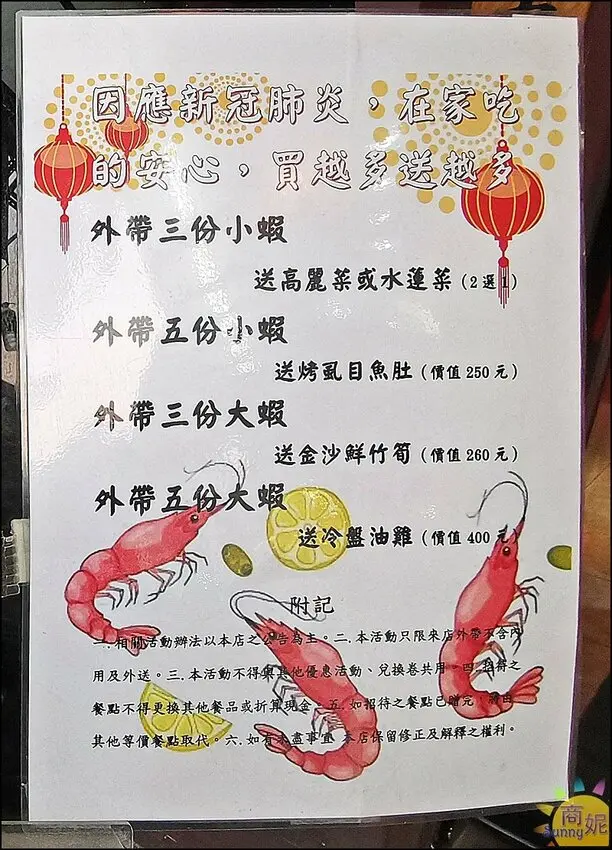 因應新冠肺炎，在家吃
的安心，買越多送越多
外帶三份小蝦
送高麗菜或水蓮菜(2選1)
外帶五份小蝦
送烤虱目魚肚(價值250元)
外帶三份大蝦
送金沙鮮竹筍(價值260元)
外帶五份大蝦
送冷盤油雞(價值400元)
附記
一.相關活動辦法以本店之公告為主。二.本活動只限來店外帶不含內
用及外送。三.本活動不得與其他優惠活動、兌換卷共用。四.招待之
餐點不得更換其他餐品或折算現金。五.如招待之餐點已贈完
其他等價餐點取代。六.如有未盡事宜 本店保留修正及解釋之權利。
商妮
Sunny